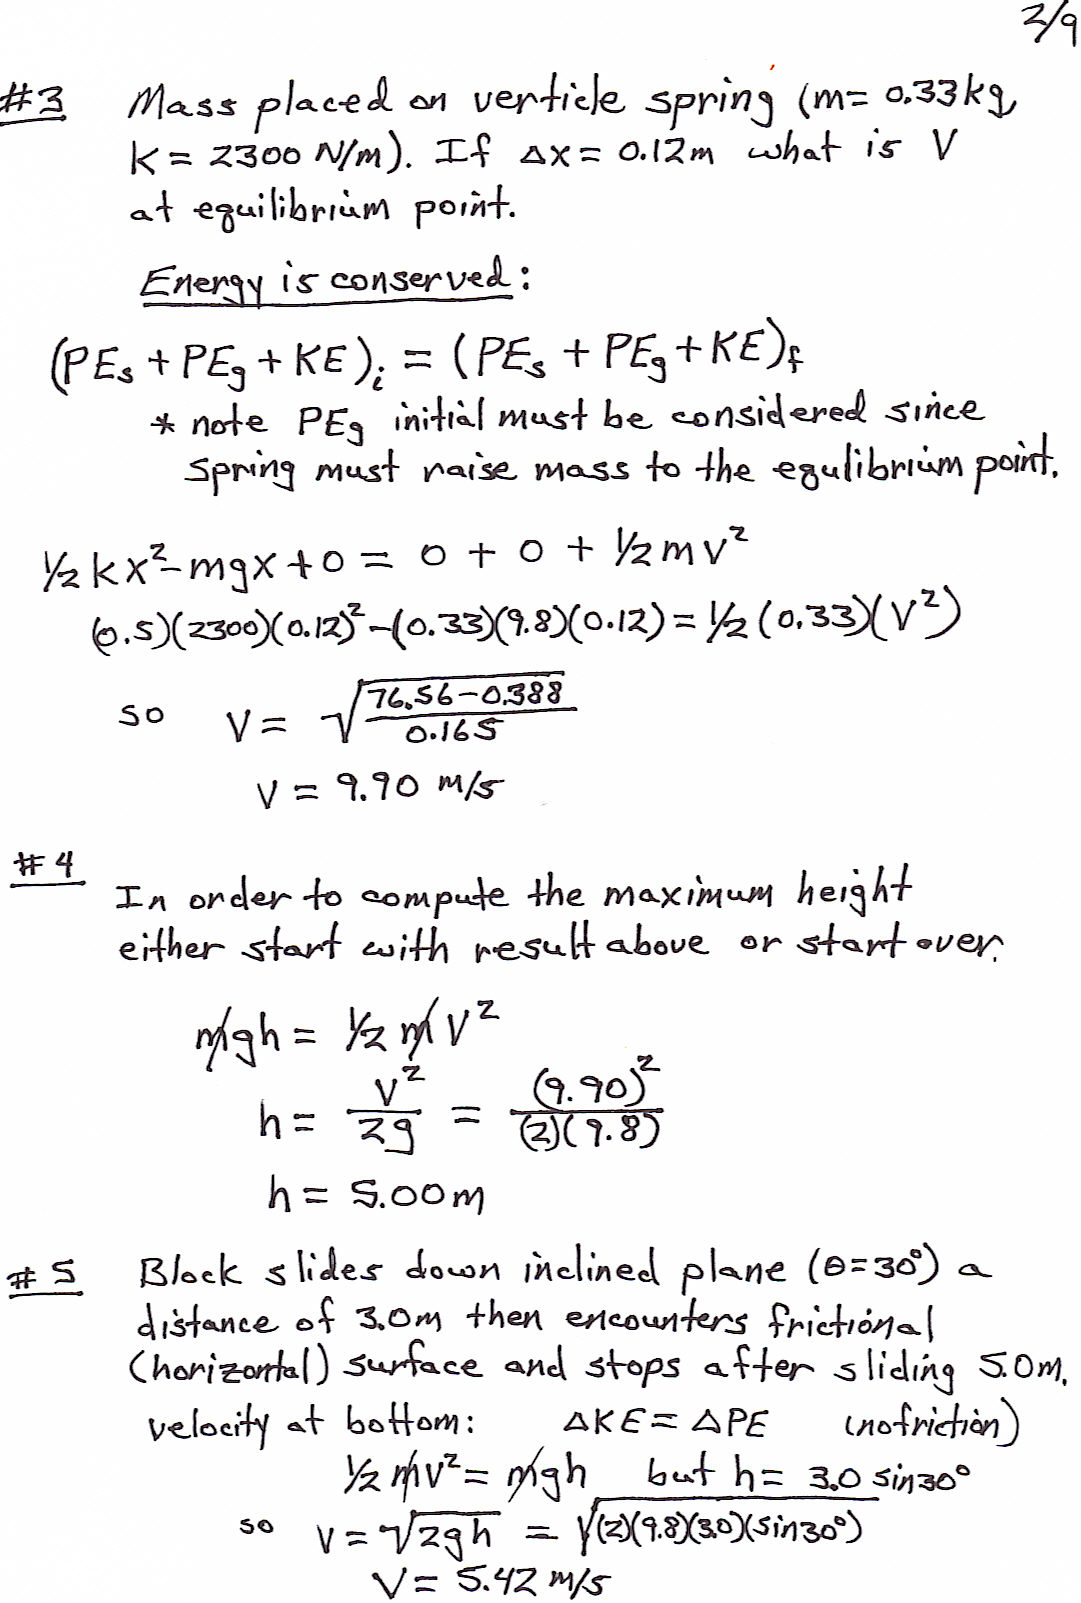 2/9
#3 Mass placed on verticle spring (m= 0.33kg,
K = 2300 N/m). If Δx = 0.12m what is V
at equilibrium point.
Energy is conserved:
(PEs + PEg + KE)i = (PEs + PEg + KE)f
* note PEg initial must be considered since
spring must raise mass to the equlibrium point.
1/2 kx² - mgx + 0 = 0 + 0 + 1/2 mv²
(0.5)(2300)(0.12)² - (0.33)(9.8)(0.12) = 1/2 (0.33)(V²)
so V = √((76.56 - 0.388)/0.165)
V = 9.90 m/s
#4
In order to compute the maximum height
either start with result above or start over.
mgh = 1/2 mv²
h = v²/2g = (9.90)²/(2)(9.8)
h = 5.00m
#5 Block slides down inclined plane (θ=30°) a
distance of 3.0m then encounters frictional
(horizontal) surface and stops after sliding 5.0m.
velocity at bottom: ΔKE = ΔPE (no friction)
1/2 mv² = mgh but h = 3.0 sin30°
so V = √2gh = √(2)(9.8)(3.0)(sin30°)
V = 5.42 m/s